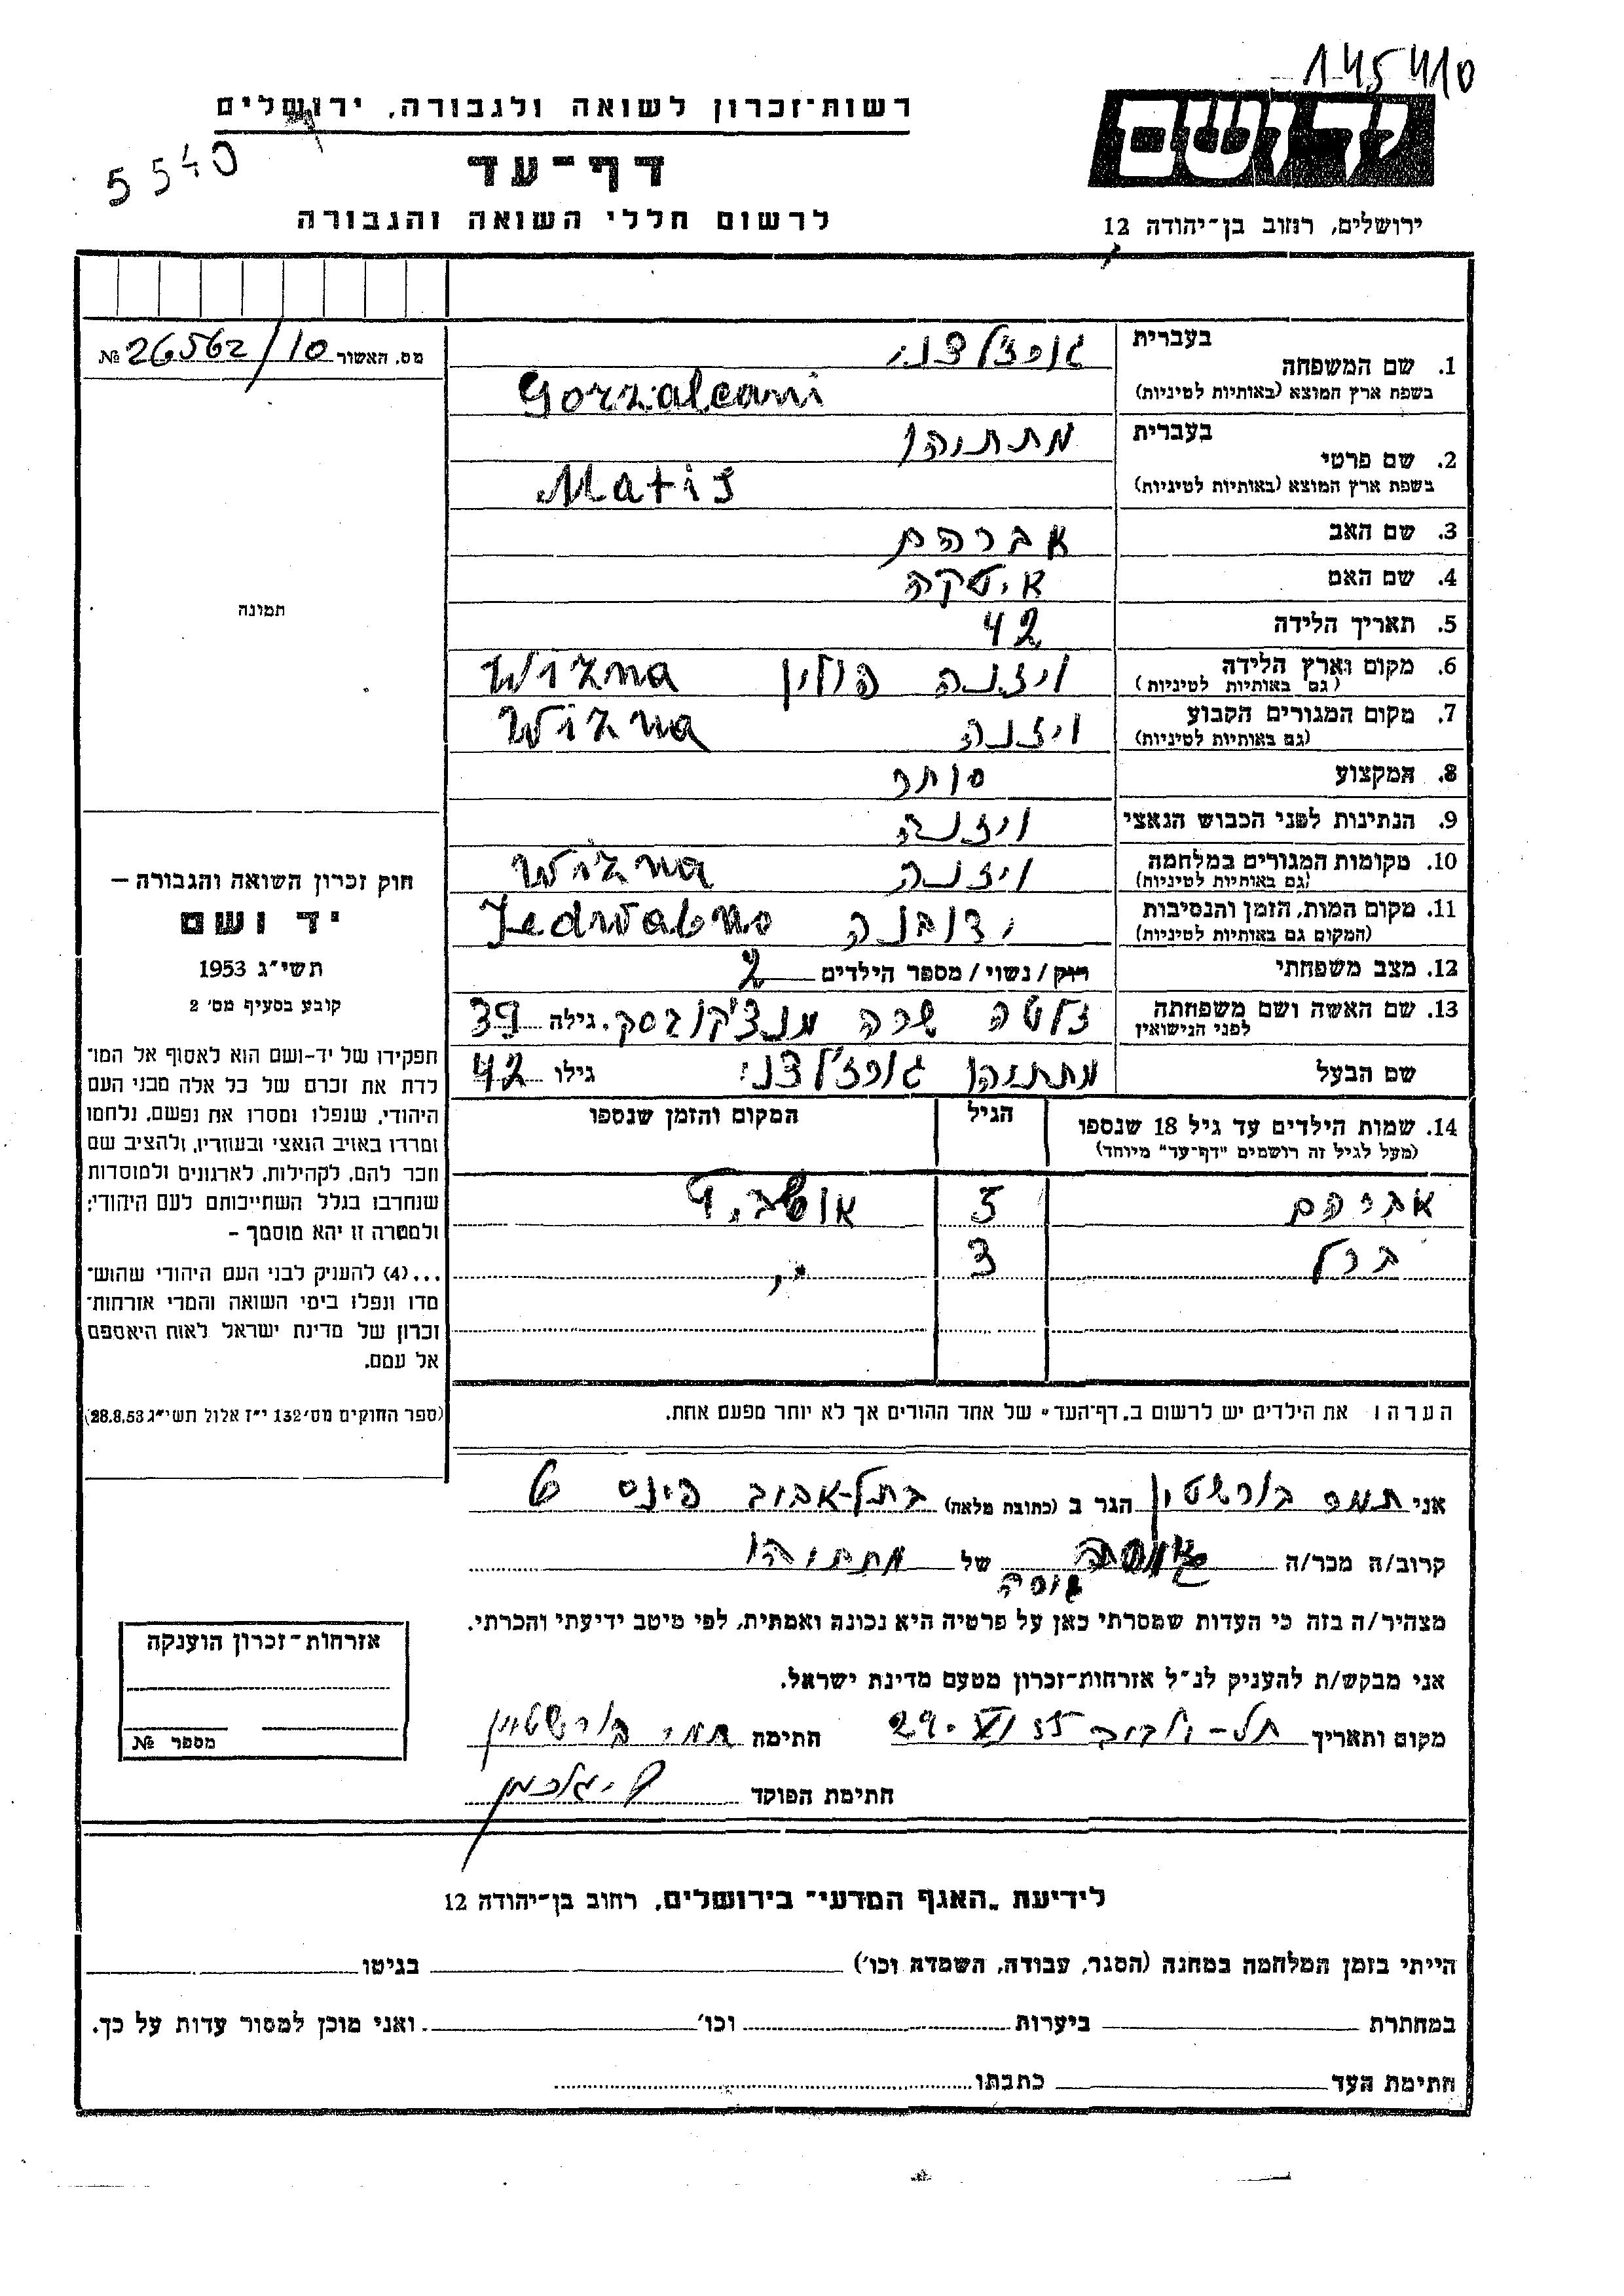 145410
רשות־זכרון לשואה ולגבורה, ירושלים
5540
דף־עד
לרשום חללי השואה והגבורה
יד ושם
ירושלים, רחוב בן־יהודה 12
מס. האשור 26562/10 №
1. שם המשפחה בעברית גורז'לצני
בשפת ארץ המוצא (באותיות לטיניות) Gorzalcani
2. שם פרטי בעברית מתתיהו
בשפת ארץ המוצא (באותיות לטיניות) Matis
3. שם האב אברהם
4. שם האם איטקה
5. תאריך הלידה 42
6. מקום וארץ הלידה ויזנה פולין Wizna
(גם באותיות לטיניות)
7. מקום המגורים הקבוע ויזנה Wizna
(גם באותיות לטיניות)
8. המקצוע סוחר
9. הנתינות לפני הכבוש הנאצי ויזנה
10. מקומות המגורים במלחמה ויזנה Wizna
(גם באותיות לטיניות)
11. מקום המות, הזמן והנסיבות ידובנה Jedwabno
(המקום גם באותיות לטיניות)
12. מצב משפחתי רוק/נשוי/מספר הילדים 2
13. שם האשה ושם משפחתה זלטה שרה מנצ'קובסק. גילה 39
לפני הנישואין
שם הבעל מתתיהו גורז'לצני גילו 42
14. שמות הילדים עד גיל 18 שנספו הגיל המקום והזמן שנספו
(מעל לגיל זה רושמים "דף־עד" מיוחד)
אברהם 5
ברל 3
הערה: את הילדים יש לרשום ב„דף־העד" של אחד ההורים אך לא יותר מפעם אחת.
תמונה
חוק זכרון השואה והגבורה —
יד ושם
תשי"ג 1953
קובע בסעיף מס' 2
תפקידו של יד-ושם הוא לאסוף אל המו־
לדת את זכרם של כל אלה מבני העם
היהודי, שנפלו ומסרו את נפשם, נלחמו
ומרדו באויב הנאצי ובעוזריו, ולהציב שם
וזכר להם, לקהילות, לארגונים ולמוסדות
שנחרבו בגלל השתייכותם לעם היהודי;
ולמטרה זו יהא מוסמך –
...(4) להעניק לבני העם היהודי שהוש־
מדו ונפלו בימי השואה והמרי אזרחות־
זכרון של מדינת ישראל לאות היאספם
אל עמם.
(ספר החוקים מס' 132 י"ז אלול תשי"ג 28.8.53)
אני תמר בורשטין הגר ב (כתובת מלאה) בתל-אביב פינס 6
קרוב/ה מכר/ה גיסה של מתתיהו
מצהיר/ה בזה כי העדות שמסרתי כאן על פרטיה היא נכונה ואמתית, לפי מיטב ידיעתי והכרתי.
אני מבקש/ת להעניק לנ"ל אזרחות־זכרון מטעם מדינת ישראל.
מקום ותאריך תל-אביב 29. XI 55 חתימה תמר בורשטין
חתימת הפוקד
אזרחות־זכרון הוענקה
מספר №
לידיעת „האגף המדעי" בירושלים, רחוב בן־יהודה 12
הייתי בזמן המלחמה במחנה (הסגר, עבודה, השמדה וכו') בגיטו
במחתרת ביערות וכו' ואני מוכן למסור עדות על כך.
חתימת העד כתבתו